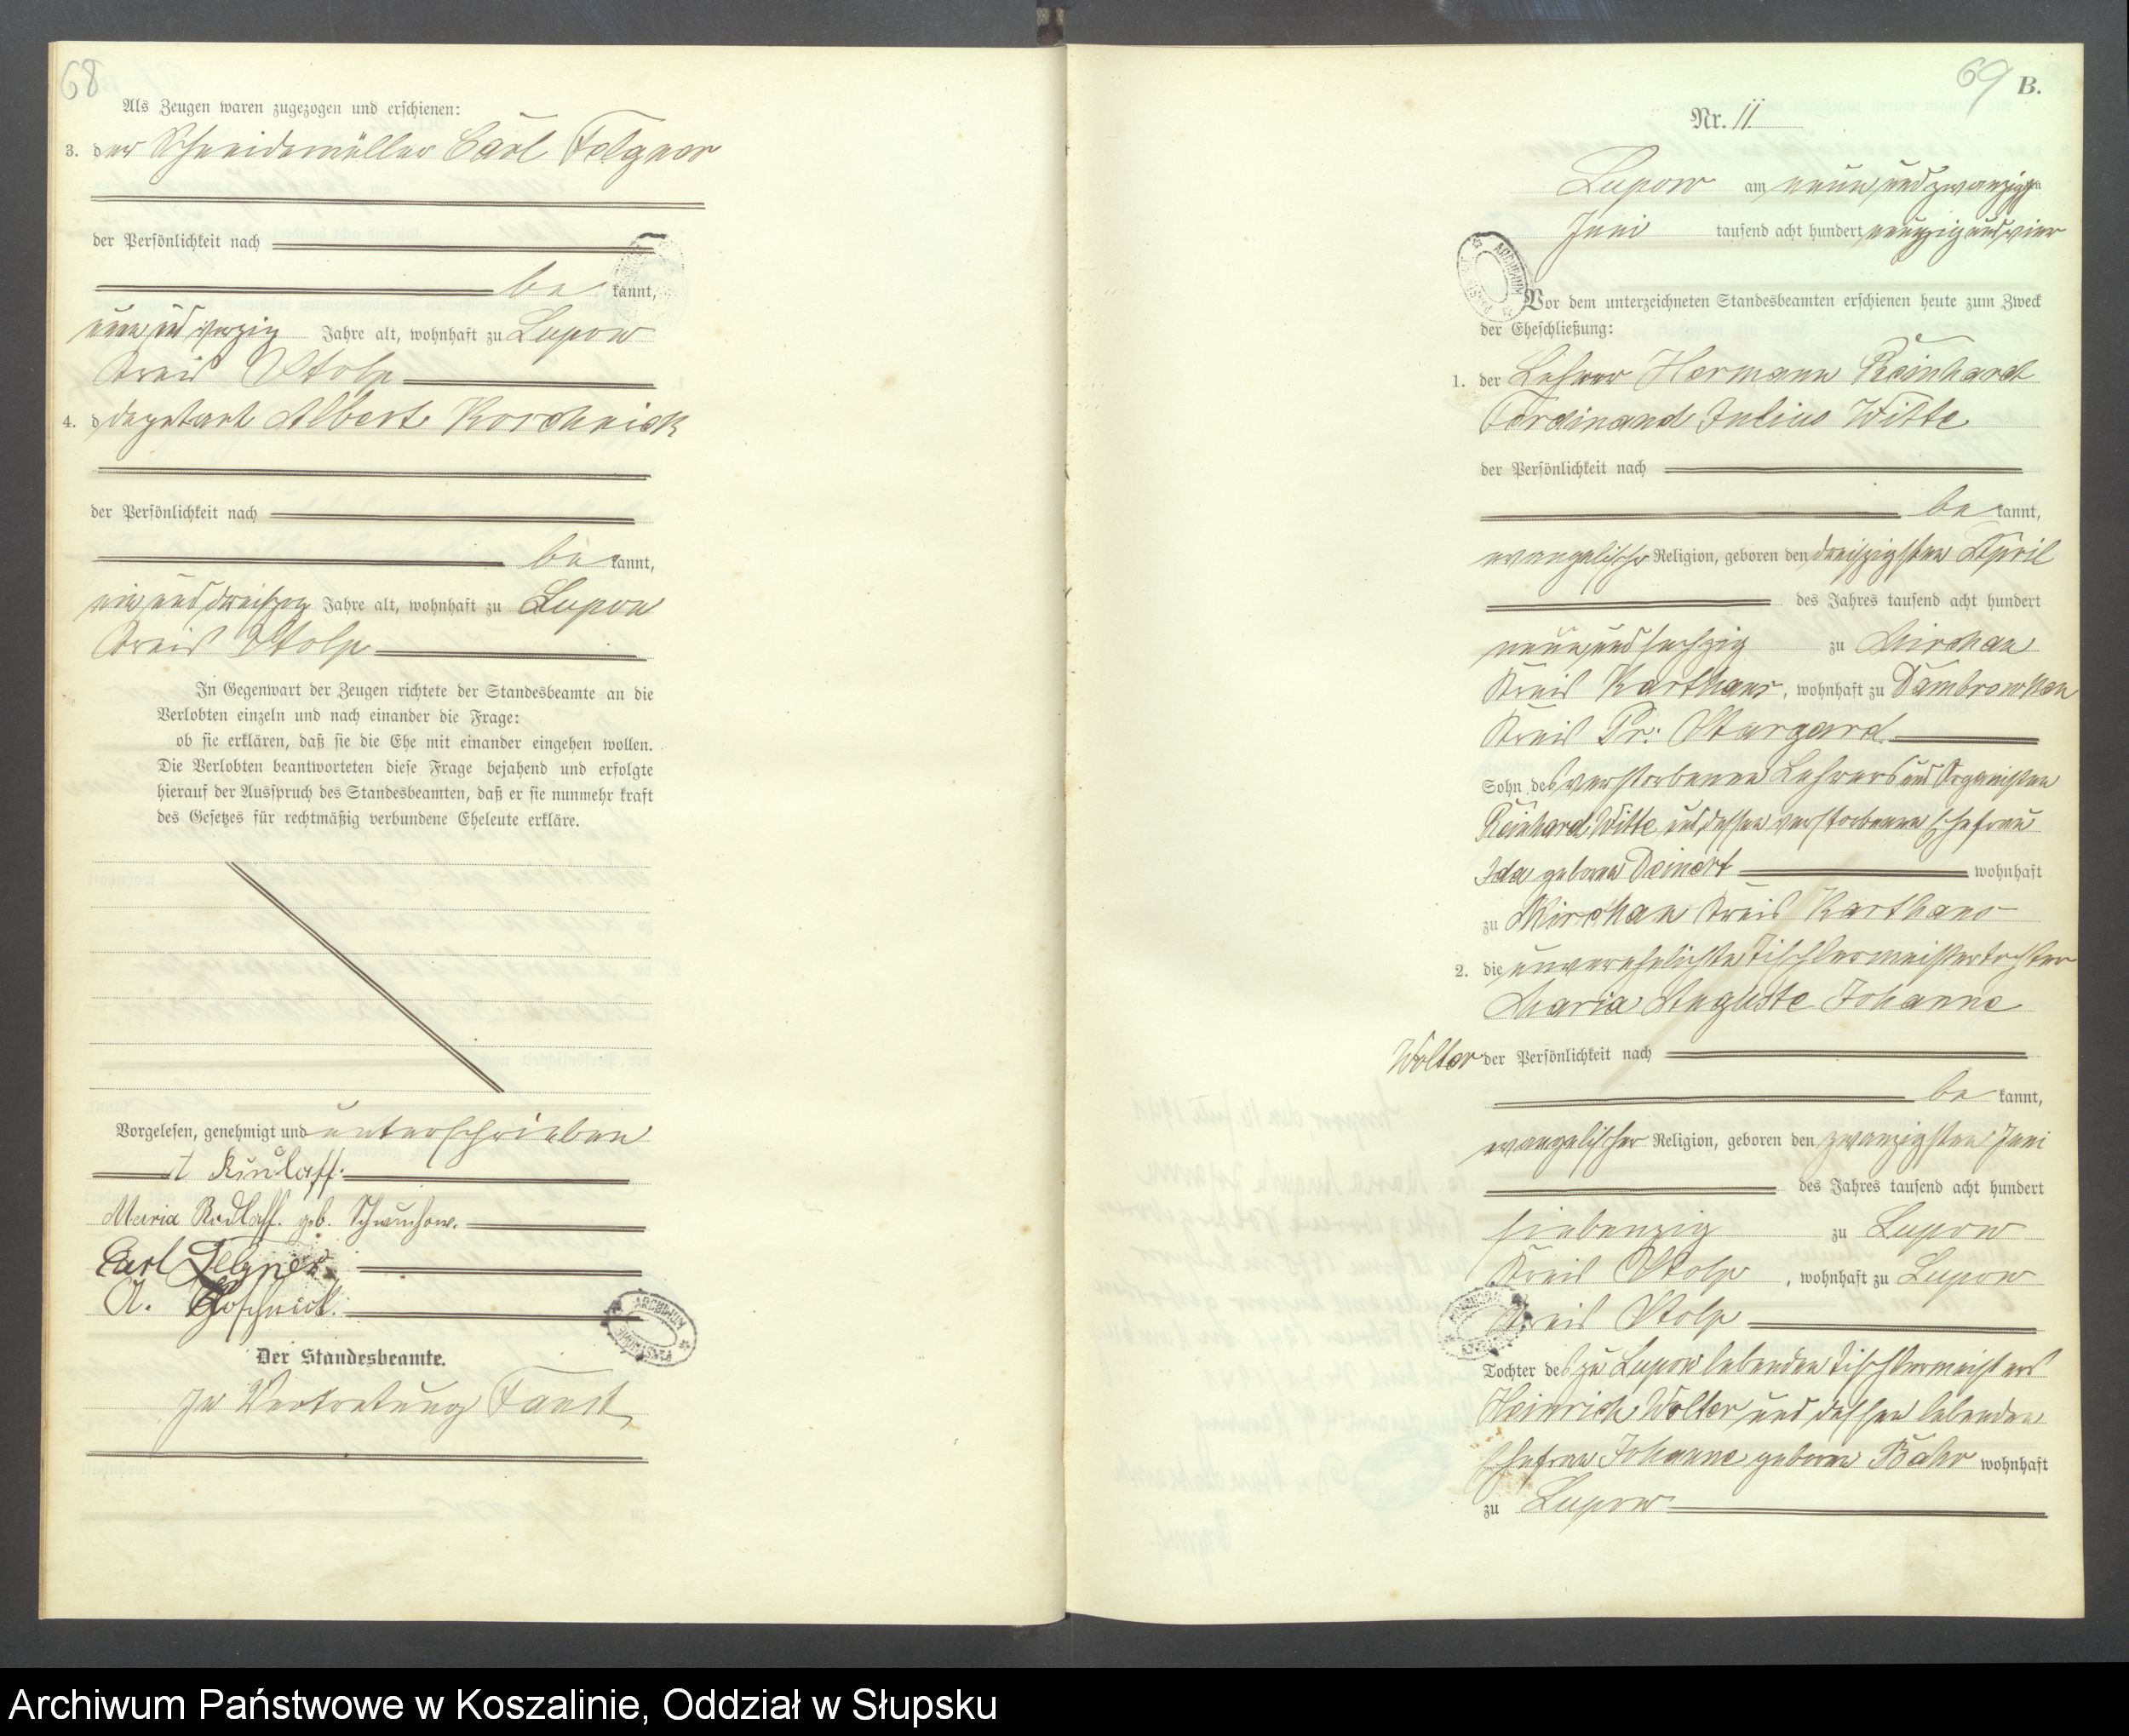 68
Als Zeugen waren zugezogen und erschienen:
3. der Schneidemüller Carl Felgner
der Persönlichkeit nach
be kannt,
neun und vierzig Jahre alt, wohnhaft zu Lupow
Kreis Stolp
4. d Albert Koschnick
der Persönlichkeit nach
be kannt,
ein und dreißig Jahre alt, wohnhaft zu Lupow
Kreis Stolp
In Gegenwart der Zeugen richtete der Standesbeamte an die
Verlobten einzeln und nach einander die Frage:
ob sie erklären, daß sie die Ehe mit einander eingehen wollen.
Die Verlobten beantworteten diese Frage bejahend und erfolgte
hierauf der Ausspruch des Standesbeamten, daß er sie nunmehr kraft
des Gesetzes für rechtmäßig verbundene Eheleute erkläre.
Vorgelesen, genehmigt und unterschrieben
Maria geb.
Carl Felgner
A. Koschnick.
Der Standesbeamte.
In Vertretung Faust
ARCHIWUM PAŃSTWOWE
69 B.
Nr. 11
Lupow am neun und zwanzigsten
Juni tausend acht hundert neunzig und vier
Vor dem unterzeichneten Standesbeamten erschienen heute zum Zweck
der Eheschließung:
1. der Lehrer Hermann Reinhard
Ferdinand Julius Witte
der Persönlichkeit nach
be kannt,
evangelischer Religion, geboren den dreißigsten April
des Jahres tausend acht hundert
neun und sechzig zu Mirchau
Kreis Karthaus, wohnhaft zu Dombrowken
Kreis Pr: Stargard
Sohn des verstorbenen Lehrers und Organisten
Reinhard Witte und dessen verstorbenen Ehefrau
Ida geborene Deinert wohnhaft
zu Mirchau Kreis Karthaus
2. die unverehelichte Tischlermeistertochter
Maria Auguste Johanne
Wolter der Persönlichkeit nach
be kannt,
evangelischer Religion, geboren den zwanzigsten Juni
des Jahres tausend acht hundert
siebenzig zu Lupow
Kreis Stolp, wohnhaft zu Lupow
Kreis Stolp
Tochter des zu Lupow lebenden Tischlermeisters
Heinrich Wolter und dessen lebenden
Ehefrau Johanne geborene Bahr wohnhaft
zu Lupow
Archiwum Państwowe w Koszalinie, Oddział w Słupsku